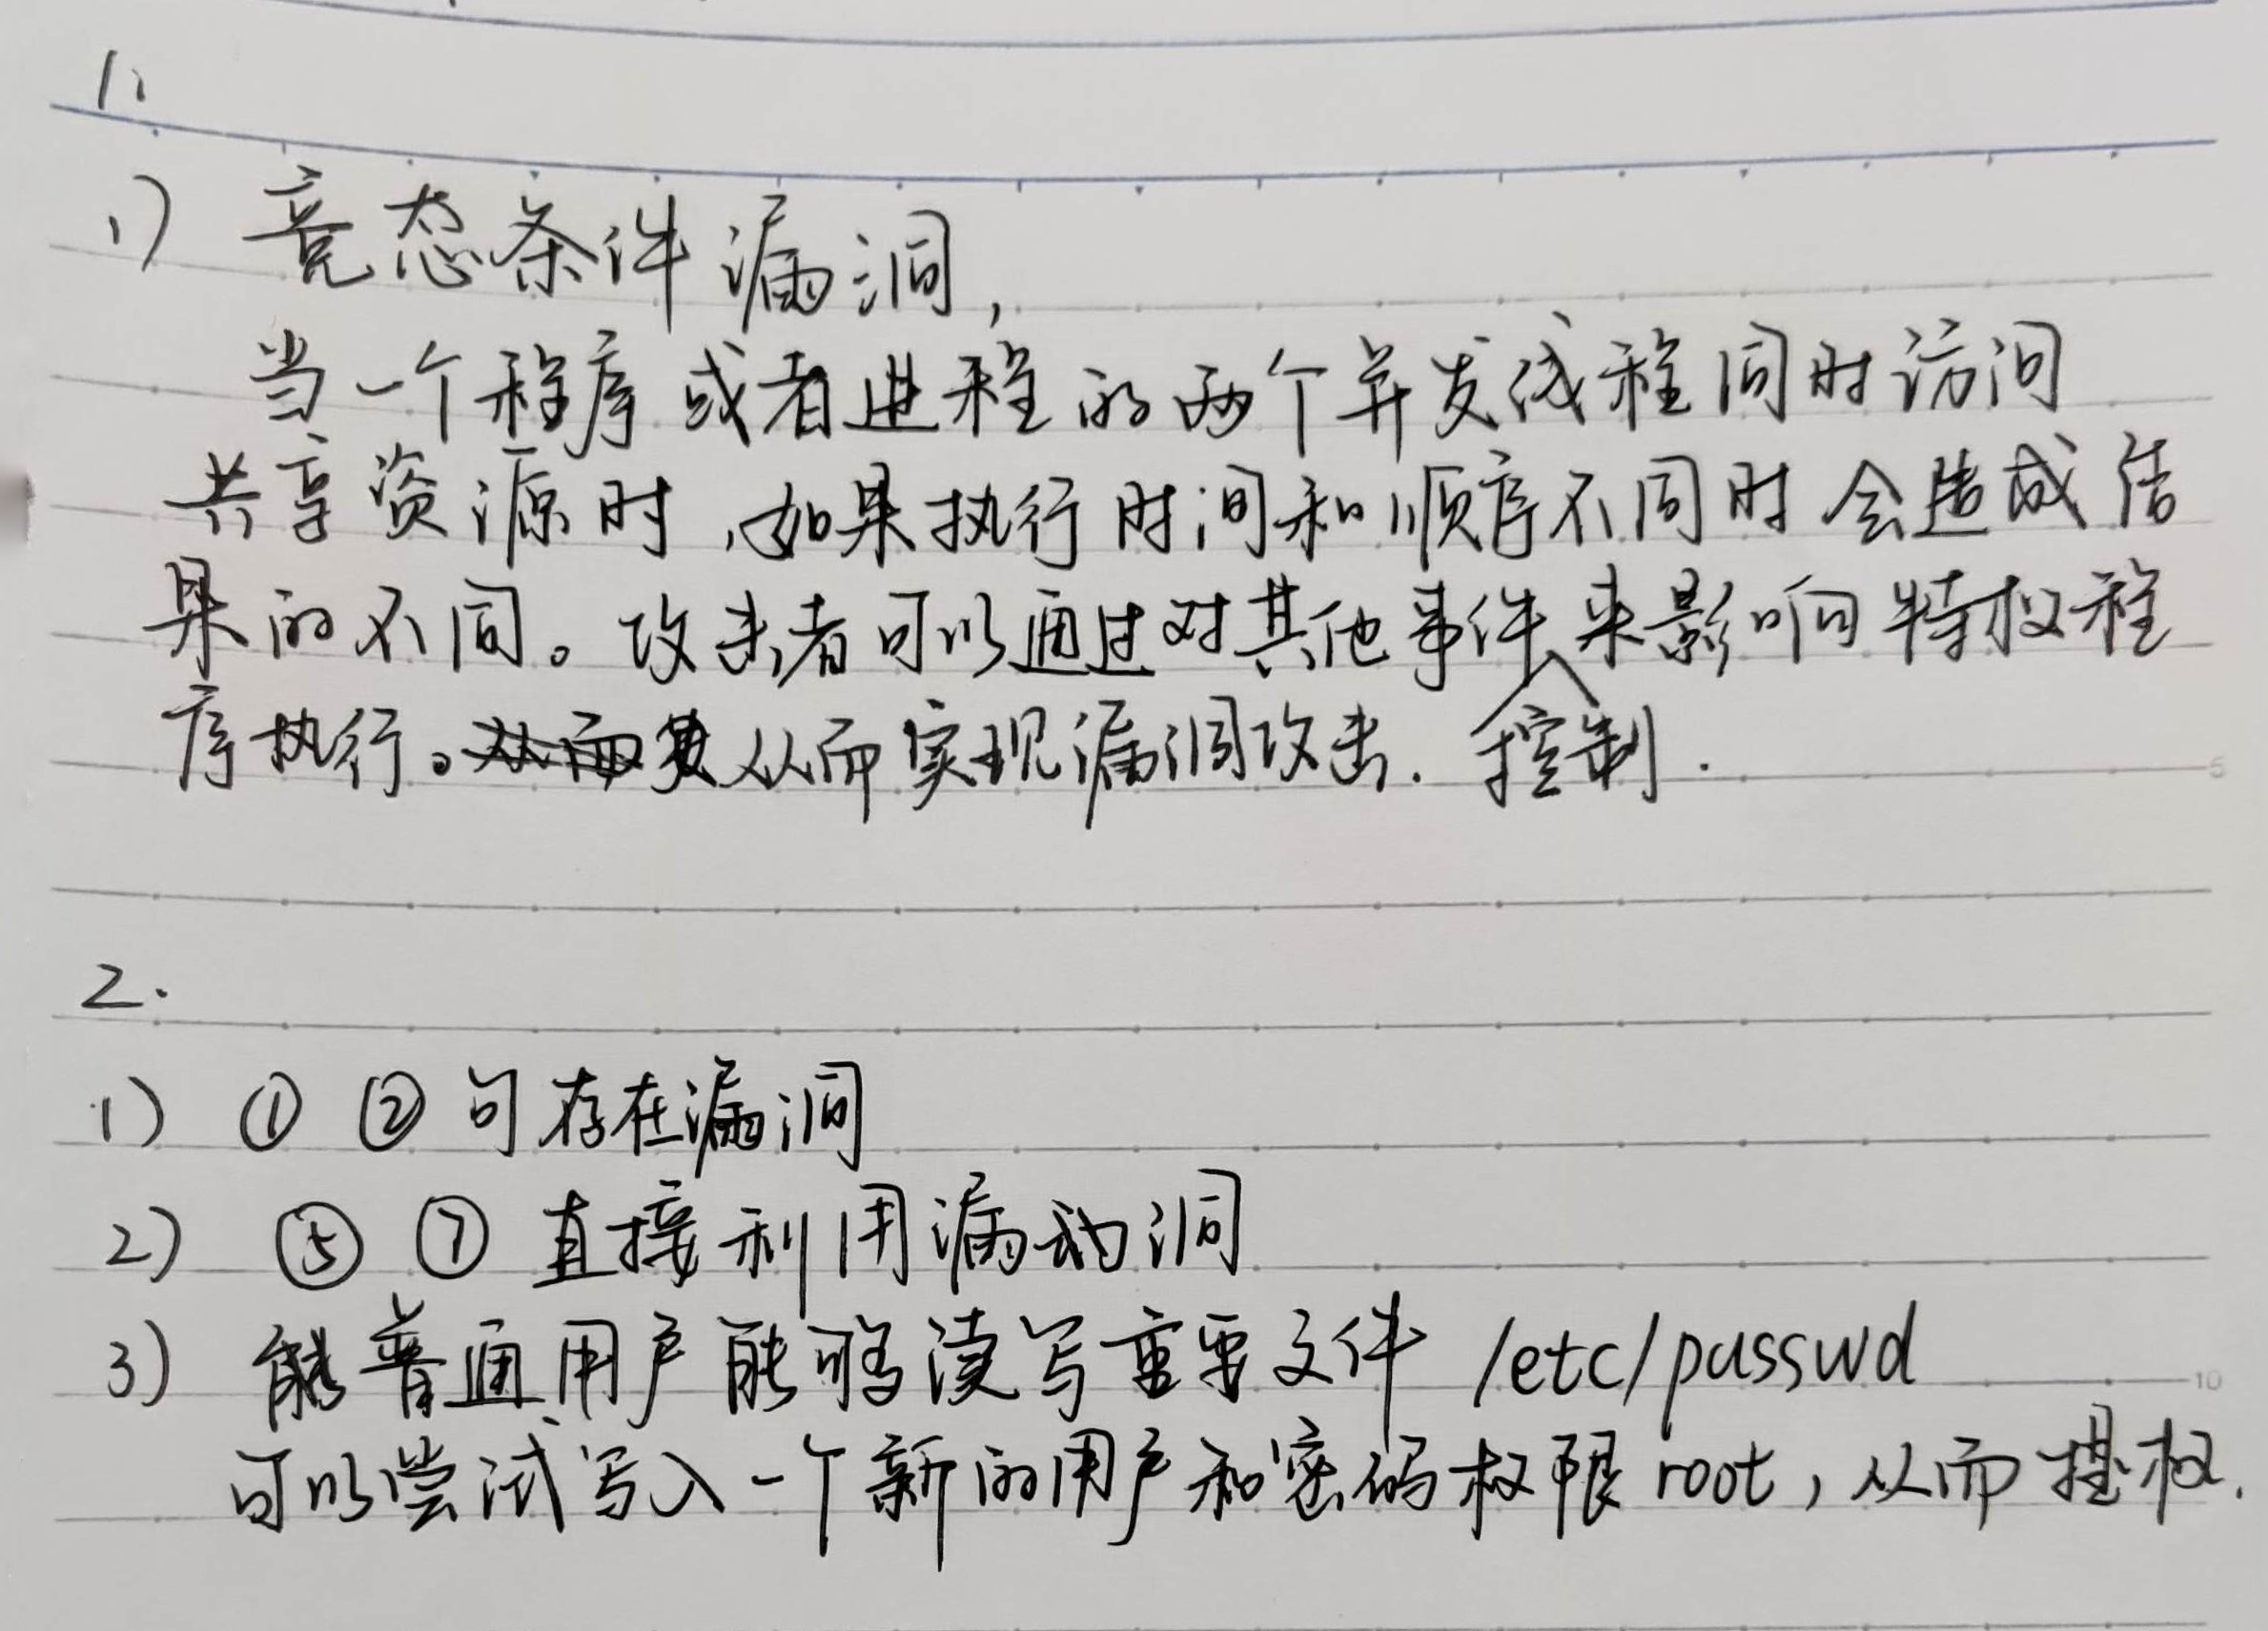 1.
1) 竞态条件漏洞,
当一个程序或者进程的两个并发线程同时访问
共享资源时,如果执行时间和顺序不同时会造成结
果的不同。攻击者可以通过对其他事件控制来影响特权程
序执行。从而实现漏洞攻击.
2.
1) ① ② 句存在漏洞
2) ⑤ ⑦ 直接利用漏洞
3) 普通用户能够读写重要文件 /etc/passwd
可以尝试写入一个新的用户和密码权限root,从而提权.
5
10